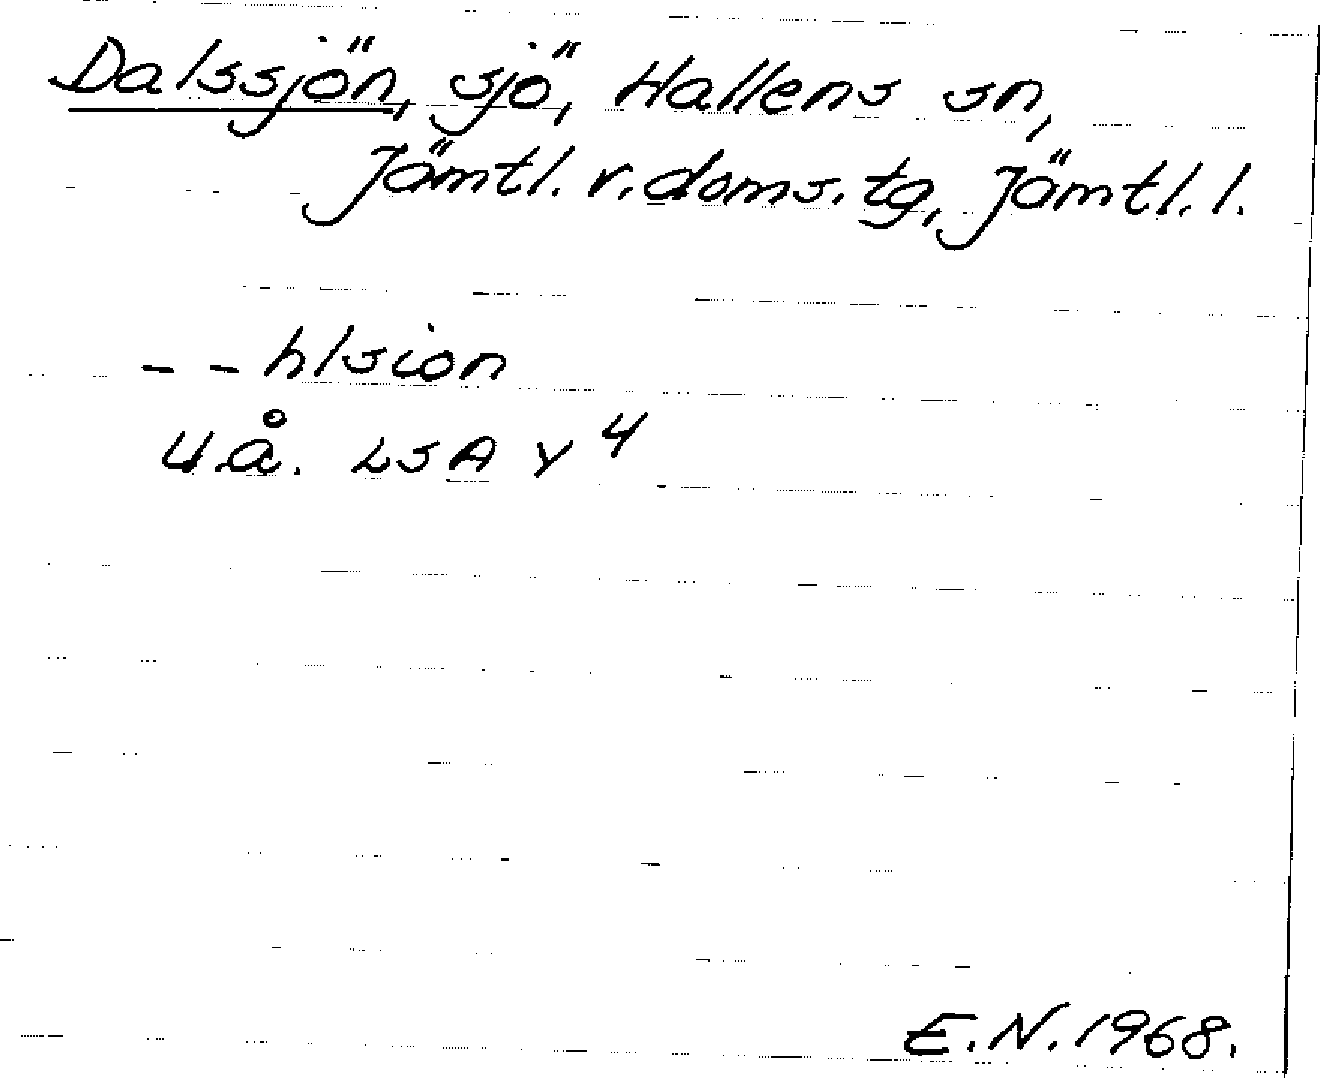 Dalssjön, sjö, Hallens sn,
Jämtl. v. doms. tg, Jämtl. l.
- - hlsion
u.å. LSA Y 4
E.N. 1968.